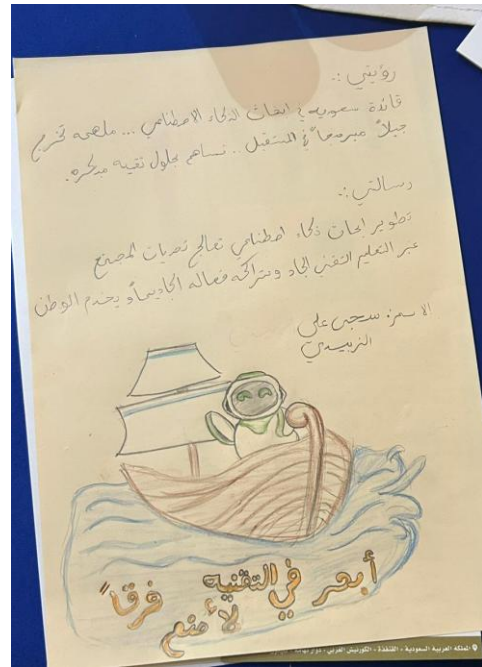 رؤيتي :.
قائدة سعودية في ابحاث الذكاء الاصطناعي ... ملهمه تخرج
جيلاً مبرمجاً في المستقبل .. تساهم بحلول تقنيه مبتكره.
رسالتي :.
تطوير ابحاث ذكاء اصطناعي تعالج تحديات المجتمع
عبر التعليم التقني الجاد وشراكه فعاله اكاديمياً ويخدم الوطن
سجى علي
الزبيدي
أبحر في التقنيه
لأصنع فرقاً
المملكة العربية السعودية - القنفذة - الكورنيش الغربي - دوار